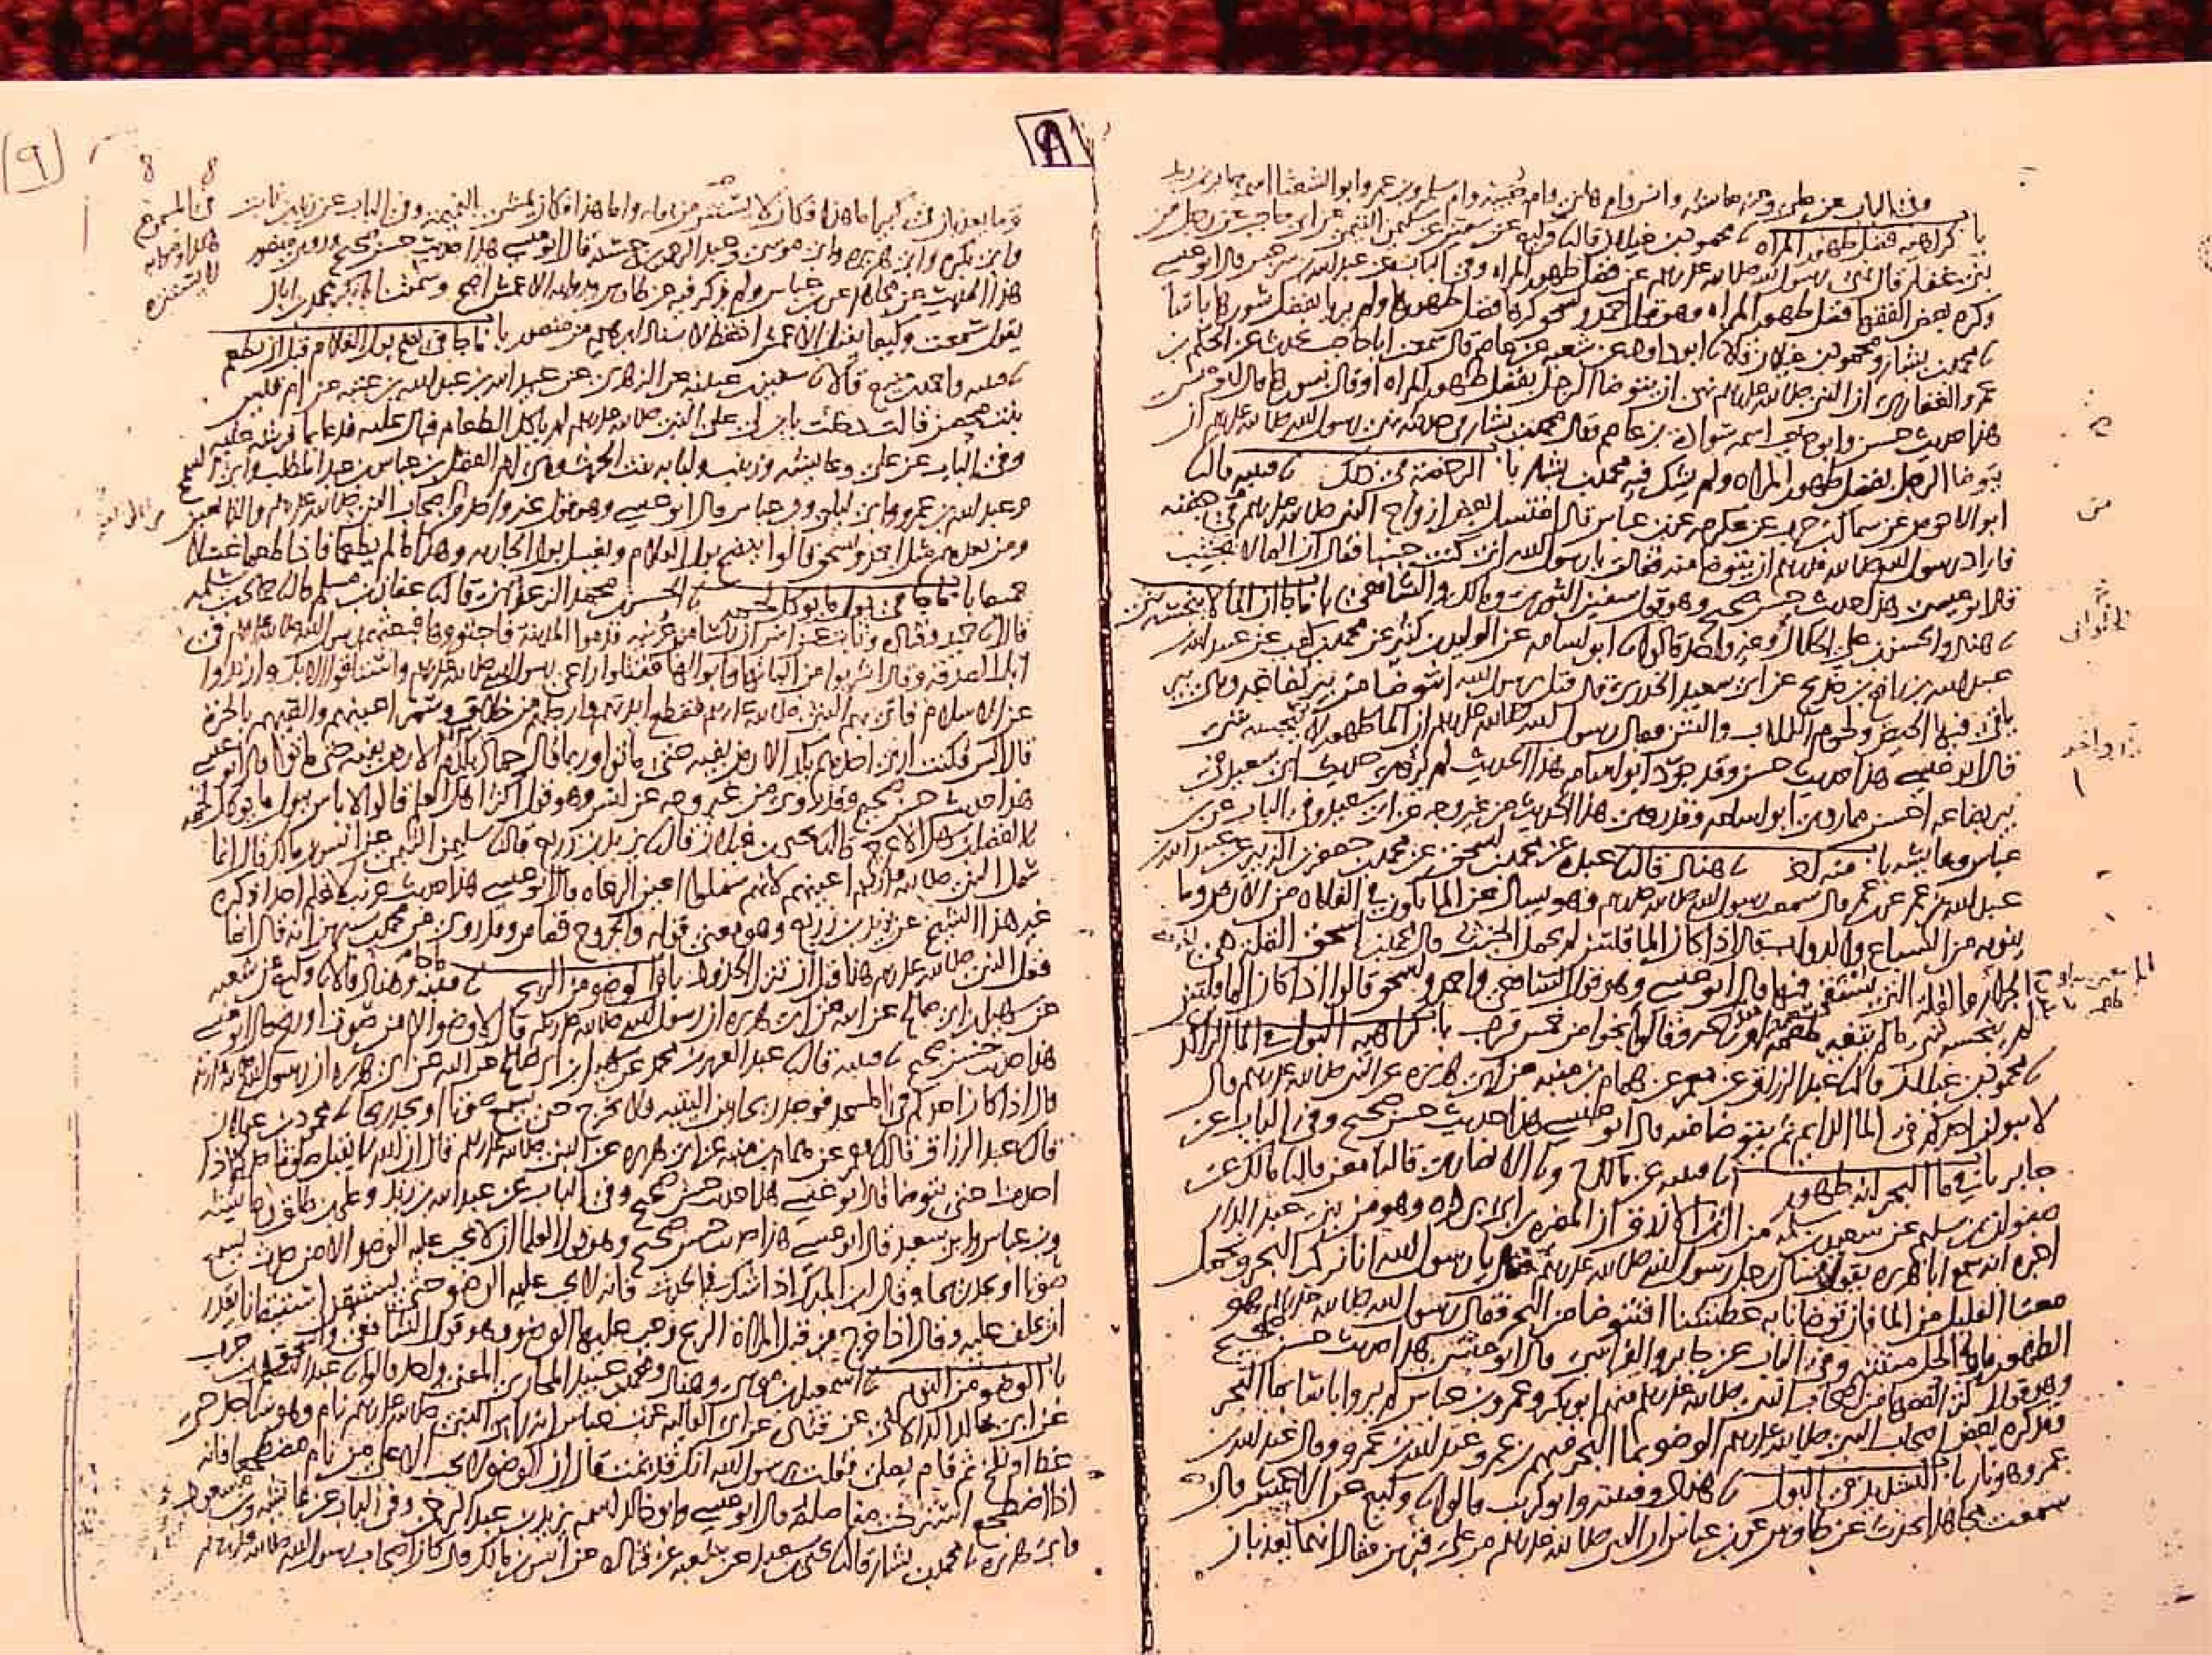 وفي الباب عن علي وعائشه وانس وام هاني وام صبيه وام سلمه وبن عمر وابو الشعثا اسمه جابر بن زيد
با كراهيه فضل طهور المراه نا محمود بن غيلان قال نا وكيع عن سفين عن سليمن التيمي عن ابي حاجب عن رجل من
بني غفار قال نهى رسول الله صلى الله عليه وسلم عن فضل طهور المراه وفي الباب عن عبد الله بن سرجس قال ابو عيسى
وكره بعض الفقها فضل طهور المراه وهو قول احمد واسحق كرها فضل طهورها ولم يريا بفضل سورها باسا
نا محمد بن بشار ومحمود بن غيلان قالا نا ابو داود عن شعبه عن عاصم قال سمعت ابا حاجب يحدث عن الحكم بن
عمرو الغفاري ان النبي صلى الله عليه وسلم نهى ان يتوضا الرجل بفضل طهور المراه او قال بسورها قال ابو عيسى
هذا حديث حسن وابو حاجب اسمه سواده بن عاصم وقال محمد بن بشار في حديثه نهى رسول الله صلى الله عليه وسلم ان
يتوضا الرجل بفضل طهور المراه ولم يشك فيه محمد بن بشار با الرخصه في ذلك نا قتيبه قال نا
ابو الاحوص عن سماك بن حرب عن عكرمه عن بن عباس قال اغتسل بعض ازواج النبي صلى الله عليه وسلم في جفنه
فاراد رسول الله صلى الله عليه وسلم ان يتوضا منه فقالت يا رسول الله اني كنت جنبا فقال ان الما لا يجنب
قال ابو عيسى هذا حديث حسن صحيح وهو قول سفين الثوري ومالك والشافعي با ما جا ان الما لا ينجسه شي
نا هناد والحسن بن علي الخلال وغير واحد قالوا نا ابو اسامه عن الوليد بن كثير عن محمد بن كعب عن عبيد الله بن
عبد الله بن رافع بن خديج عن ابي سعيد الخدري قال قيل يا رسول الله اتتوضا من بير بضاعه وهي بير
يلقى فيها الحيض ولحوم الكلاب والنتن فقال رسول الله صلى الله عليه وسلم ان الما طهور لا ينجسه شي
قال ابو عيسى هذا حديث حسن وقد جود ابو اسامه هذا الحديث لم يرو حديث ابي سعيد في
بير بضاعه احسن مما روى ابو اسامه وقد روي هذا الحديث من غير وجه عن ابي سعيد وفي الباب عن بن
عباس وعايشه با منه اخر نا هناد قال نا عبده عن محمد بن اسحق عن محمد بن جعفر بن الزبير عن عبيد الله بن
عبد الله بن عمر عن بن عمر قال سمعت رسول الله صلى الله عليه وسلم وهو يسال عن الما يكون في الفلاه من الارض وما
ينوبه من السباع والدواب قال اذا كان الما قلتين لم يحمل الخبث قال محمد بن اسحق القله هي
الجرار والقله التي يستقى فيها قال ابو عيسى وهو قول الشافعي واحمد واسحق قالوا اذا كان الما قلتين
لم ينجسه شي ما لم يتغير طعمه او ريحه وقالوا يكون نحوا من خمس قرب با كراهيه البول في الما الراكد
نا محمود بن غيلان قال نا عبد الرزاق عن معمر عن همام بن منبه عن ابي هريره عن النبي صلى الله عليه وسلم قال
لا يبولن احدكم في الما الدايم ثم يتوضا منه قال ابو عيسى هذا حديث حسن صحيح وفي الباب عن
جابر با في ما البحر انه طهور نا قتيبه عن مالك ح ونا الانصاري قال نا معن قال نا مالك عن
صفوان بن سليم عن سعيد بن سلمه من ال ابن الازرق ان المغيره بن ابي برده وهو من بني عبد الدار
اخبره انه سمع ابا هريره يقول سال رجل رسول الله صلى الله عليه وسلم فقال يا رسول الله انا نركب البحر ونحمل
معنا القليل من الما فان توضانا به عطشنا افنتوضا من البحر فقال رسول الله صلى الله عليه وسلم هو
الطهور ماوه الحل ميتته وفي الباب عن جابر والفراسي قال ابو عيسى هذا حديث حسن صحيح
وهو قول اكثر الفقها من اصحاب النبي صلى الله عليه وسلم منهم ابو بكر وعمر وبن عباس لم يروا باسا بما البحر
وقد كره بعض اصحاب النبي صلى الله عليه وسلم الوضو بما البحر منهم بن عمر وعبد الله بن عمرو وقال عبد الله بن
عمرو هو نار با التشديد في البول نا هناد وقتيبه وابو كريب قالوا نا وكيع عن الاعمش قال
سمعت مجاهدا يحدث عن طاوس عن بن عباس ان النبي صلى الله عليه وسلم مر على قبرين فقال انهما يعذبان
٩
وما يعذبان في كبير اما هذا فكان لا يستتر من بوله واما هذا فكان يمشي بالنميمه وفي الباب عن زيد بن ثابت
وابي بكره وابي هريره وابي موسى وعبد الرحمن بن حسنه قال ابو عيسى هذا حديث حسن صحيح وروى منصور
هذا الحديث عن مجاهد عن بن عباس ولم يذكر فيه عن طاوس وروايه الاعمش اصح وسمعت ابا بكر محمد بن ابان
يقول سمعت وكيعا يقول الاعمش احفظ لاسناد ابرهيم من منصور با ما جا في نضح بول الغلام قبل ان يطعم
نا قتيبه واحمد بن منيع قالا نا سفين بن عيينه عن الزهري عن عبيد الله بن عبد الله بن عتبه عن ام قيس
بنت محصن قالت دخلت بابن لي على النبي صلى الله عليه وسلم لم ياكل الطعام فبال عليه فدعا بما فرشه عليه
وفي الباب عن علي وعايشه وزينب ولبابه بنت الحرث وهي ام الفضل بن عباس بن عبد المطلب وابي السمح
وعبد الله بن عمرو وابي ليلى وبن عباس قال ابو عيسى وهو قول غير واحد من اصحاب النبي صلى الله عليه وسلم والتابعين
ومن بعدهم مثل احمد واسحق قالوا ينضح بول الغلام ويغسل بول الجاريه وهذا ما لم يطعما فاذا طعما غسلا
جميعا با ما جا في بول ما يوكل لحمه نا الحسن بن محمد الزعفراني قال نا عفان بن مسلم قال نا حماد بن سلمه
قال نا حميد وقتاده وثابت عن انس ان ناسا من عرينه قدموا المدينه فاجتووها فبعثهم رسول الله صلى الله عليه وسلم في
ابل الصدقه وقال اشربوا من البانها وابوالها فقتلوا راعي رسول الله صلى الله عليه وسلم واستاقوا الابل وارتدوا
عن الاسلام فاتي بهم النبي صلى الله عليه وسلم فقطع ايديهم وارجلهم من خلاف وسمر اعينهم والقاهم بالحره
قال انس فكنت ارى احدهم يكد الارض بفيه حتى ماتوا وربما قال حماد يكدم الارض بفيه حتى ماتوا قال ابو عيسى
هذا حديث حسن صحيح وقد روي من غير وجه عن انس وهو قول اكثر اهل العلم قالوا لا باس ببول ما يوكل لحمه
نا الفضل بن سهل الاعرج قال نا يحيى بن غيلان قال نا يزيد بن زريع قال نا سليمن التيمي عن انس بن مالك قال انما
سمل النبي صلى الله عليه وسلم اعينهم لانهم سملوا اعين الرعاه قال ابو عيسى هذا حديث غريب لا نعلم احدا ذكره
غير هذا الشيخ عن يزيد بن زريع وهو معنى قوله والجروح قصاص وقد روي عن محمد بن سيرين انه قال انما
فعل النبي صلى الله عليه وسلم هذا قبل ان تنزل الحدود با ما جا في الوضو من الريح نا قتيبه وهناد قالا نا وكيع عن شعبه
عن سهيل بن ابي صالح عن ابيه عن ابي هريره ان رسول الله صلى الله عليه وسلم قال لا وضو الا من صوت او ريح قال ابو عيسى
هذا حديث حسن صحيح نا قتيبه قال نا عبد العزيز بن محمد عن سهيل بن ابي صالح عن ابيه عن ابي هريره ان رسول الله صلى الله عليه وسلم
قال اذا كان احدكم في المسجد فوجد ريحا بين اليتيه فلا يخرج حتى يسمع صوتا او يجد ريحا نا محمود بن غيلان
قال نا عبد الرزاق قال نا معمر عن همام بن منبه عن ابي هريره عن النبي صلى الله عليه وسلم قال ان الله لا يقبل صلاه احدكم اذا
احدث حتى يتوضا قال ابو عيسى هذا حديث حسن صحيح وفي الباب عن عبد الله بن زيد وعلي بن طلق وعايشه
وبن عباس وابي سعيد قال ابو عيسى هذا حديث حسن صحيح وهو قول العلما ان لا يجب عليه الوضو الا من حدث يسمع
صوتا او يجد ريحا وقال ابن المبارك اذا شك في الحدث فانه لا يجب عليه الوضو حتى يستيقن استيقانا يقدر
ان يحلف عليه وقال اذا خرج من قبل المراه الريح وجب عليها الوضو وهو قول الشافعي واسحق
با الوضو من النوم نا اسمعيل بن موسى وهناد ومحمد بن عبيد المحاربي المعنى واحد قالوا نا عبد السلام بن حرب
عن ابي خالد الدالاني عن قتاده عن ابي العاليه عن بن عباس انه راى النبي صلى الله عليه وسلم نام وهو ساجد حتى
غط او نفخ ثم قام يصلي فقلت يا رسول الله انك قد نمت قال ان الوضو لا يجب الا على من نام مضطجعا فانه
اذا اضطجع استرخت مفاصله قال ابو عيسى وابو خالد اسمه يزيد بن عبد الرحمن وفي الباب عن عايشه وبن مسعود
وابي هريره نا محمد بن بشار قال نا يحيى بن سعيد عن شعبه عن قتاده عن انس بن مالك قال كان اصحاب رسول الله صلى الله عليه وسلم
٩